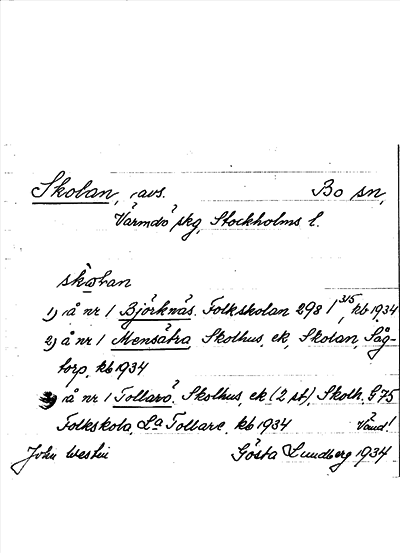 Skolan, avs. Bo sn,
Värmdö skg, Stockholms l.
skolan
1) å nr 1 Björknäs. Folkskolan 298 1 3/5, kb 1934
2) å nr 1 Mensätra Skolhus, ek, Skolan, Såg-
torp, kb 1934
3) å nr 1 Tollarö. Skolhus, ek (2 st), Skolh. G 75
Folkskola, La Tollare, kb 1934 Vänd!
John Westin Gösta Lundberg 1934